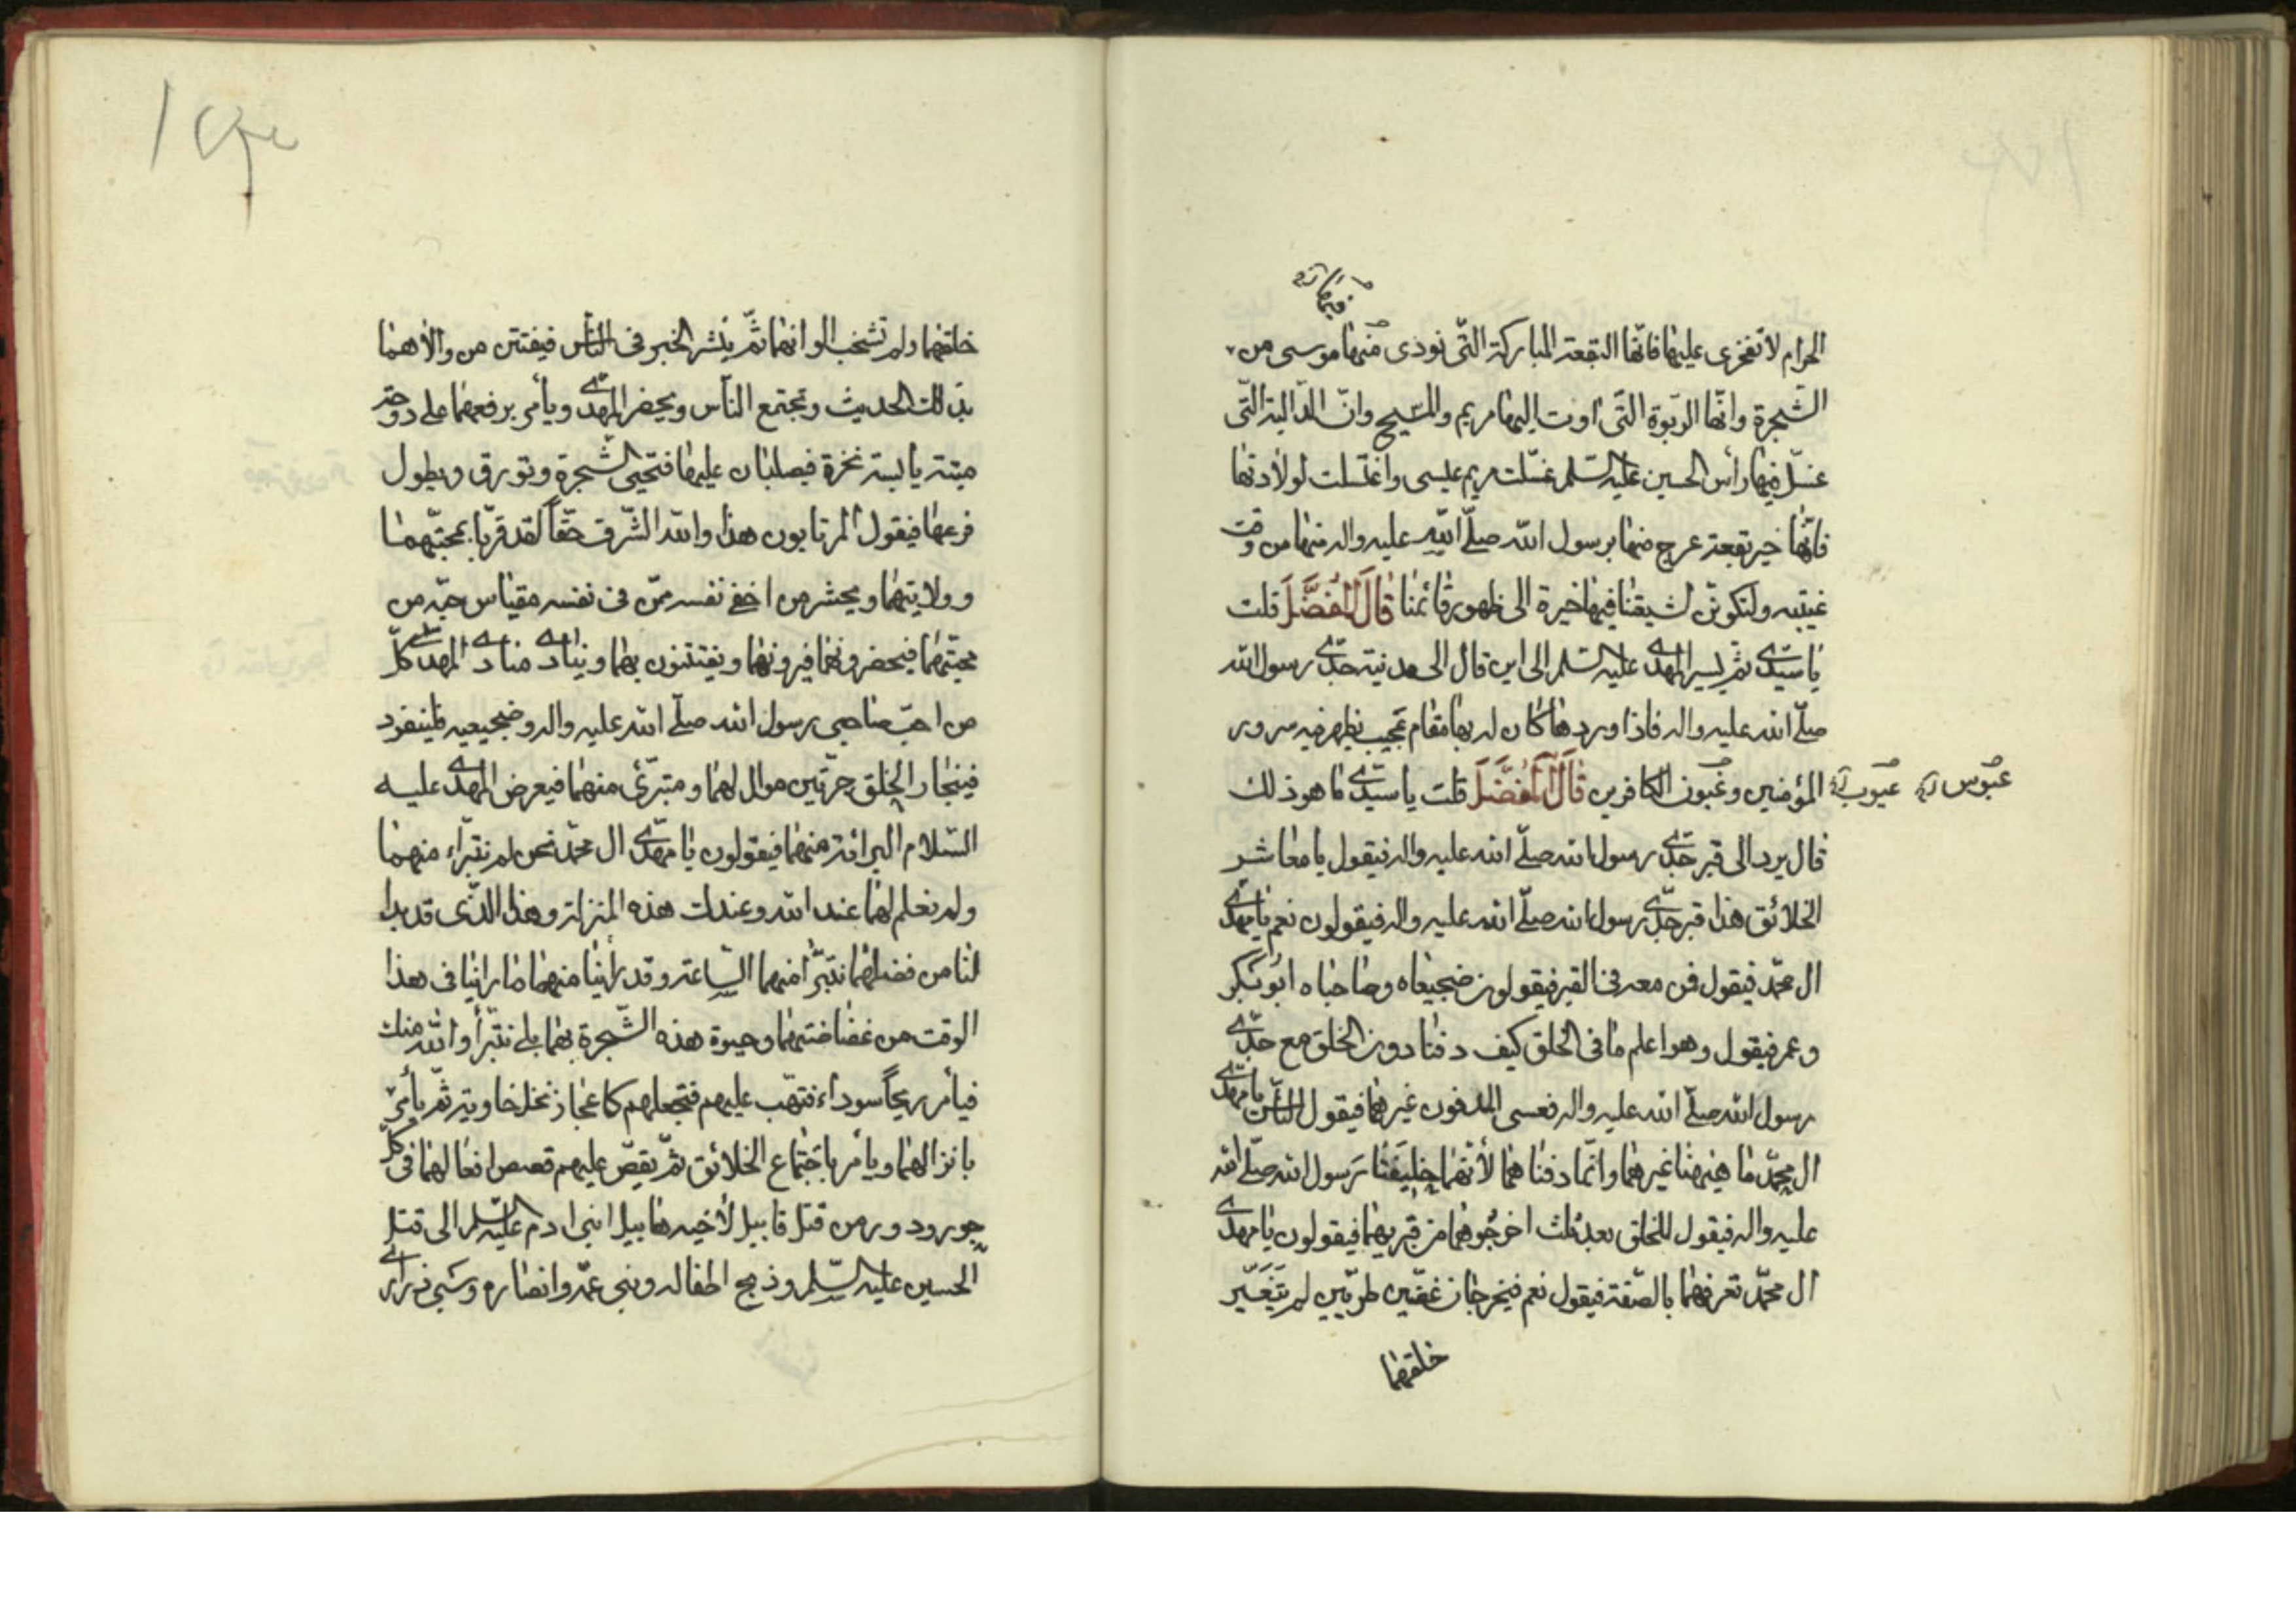 الحرام لا تفخري عليها فانّها البقعة المباركة التّي نودي منها موسى من
الشّجرة وانّها الرّبوة التّي اوت اليها مريم والمسيح وانّ الدّالية التّي
غسّل فيها رأس الحسين عليه السّلم غسّلت مريم عيسى واغتسلت لولادتها
فانّها خير بقعة عرج منها برسول الله صلّى الله عليه واله منها من وقت
غيبته ولتكوننّ لشيعتنا فيها خيرة الى ظهور قائمنا قَالَ الْمُفَضَّلُ قلت
يا سيّدي ثمّ يسير المهدي عليه السّلم الى اين قال الى مدينة جدّي رسول الله
صلّى الله عليه واله فاذا وردها كان له بها مقام عجيب يظهر فيه سرور
المؤمنين وغبون الكافرين قَالَ الْمُفَضَّلُ قلت يا سيّدي ما هو ذلك
عيوب
عبوس
قال يرد الى قبر جدّي رسول الله صلّى الله عليه واله فيقول يا معاشر
الخلائق هذا قبر جدّي رسول الله صلّى الله عليه واله فيقولون نعم يا مهدي
ال محمّد فيقول فمن معه في القبر فيقولون ضجيعاه وصاحباه ابو بكر
وعمر فيقول وهو اعلم ما في الخلق كيف دفنا دون الخلق مع جدّي
رسول الله صلّى الله عليه واله فعسى المدفون غيرهما فيقول النّاس يا مهدي
ال محمّد ما هيهنا غيرهما وانّما دفنا هما لأنّهما خليفتا رسول الله صلّى الله
عليه واله فيقول للخلق بعد ثلث اخرجوهما من قبريهما فيقولون يا مهدي
ال محمّد تعرفهما بالصّفة فيقول نعم فيخرجان غضّين طريّين لم يتغيّر
خلقهما
خلقهما ولم تشحب الوانهما ثمّ ينشر الخبر في النّاس فيفتتن من والاهما
بذلك الحديث وتجتمع النّاس ويحضر المهدي ويأمر برفعهما على دوحة
ميتة يابسة نخرة فيصلبان عليها فتحيى الشّجرة وتورق ويطول
فرعها فيقول المرتابون هذا والله الشّرف حقّاً لقد قربّا بمحبّتهما
وولايتهما ويحشر من اخفى نفسه ممّن في نفسه مقياس حبّة من
محبّتهما فيحضرونهما فيرونهما ويفتتنون بهما وينادي منادي المهدي كلّ
من احبّ صاحبي رسول الله صلّى الله عليه واله وضجيعيه فلينفرد
فينحاز الخلق جزئين موال لهما ومتبرّئ منهما فيعرض المهدي عليه
السّلام البرائة منهما فيقولون يا مهدّي ال محمّد نحن لم نتبرّاء منهما
ولم نعلم لهما عند الله وعندك هذه المنزلة وهذا الذّي قد بدا
لنا من فضلهما نتبرّأ منهما السّاعة وقد رأينا منهما ما راينا في هذا
الوقت من غضاضتهما وحيوة هذه الشّجرة بهما بلى نتبرّأ والله منك
فيأمر ريحاً سوداء فتهبّ عليهم فتجعلهم كاعجاز نخل خاوية ثمّ يأمر
بانزالهما ويأمر باجتماع الخلائق ثمّ يقصّ عليهم قصص افعالهما في كلّ
جور ودور من قتل قابيل لأخيه هابيل ابني ادم عليه السّلم الى قتل
الحسين عليه السّلم وذبح اطفاله وبني عمّه وانصاره وسبي ذراري